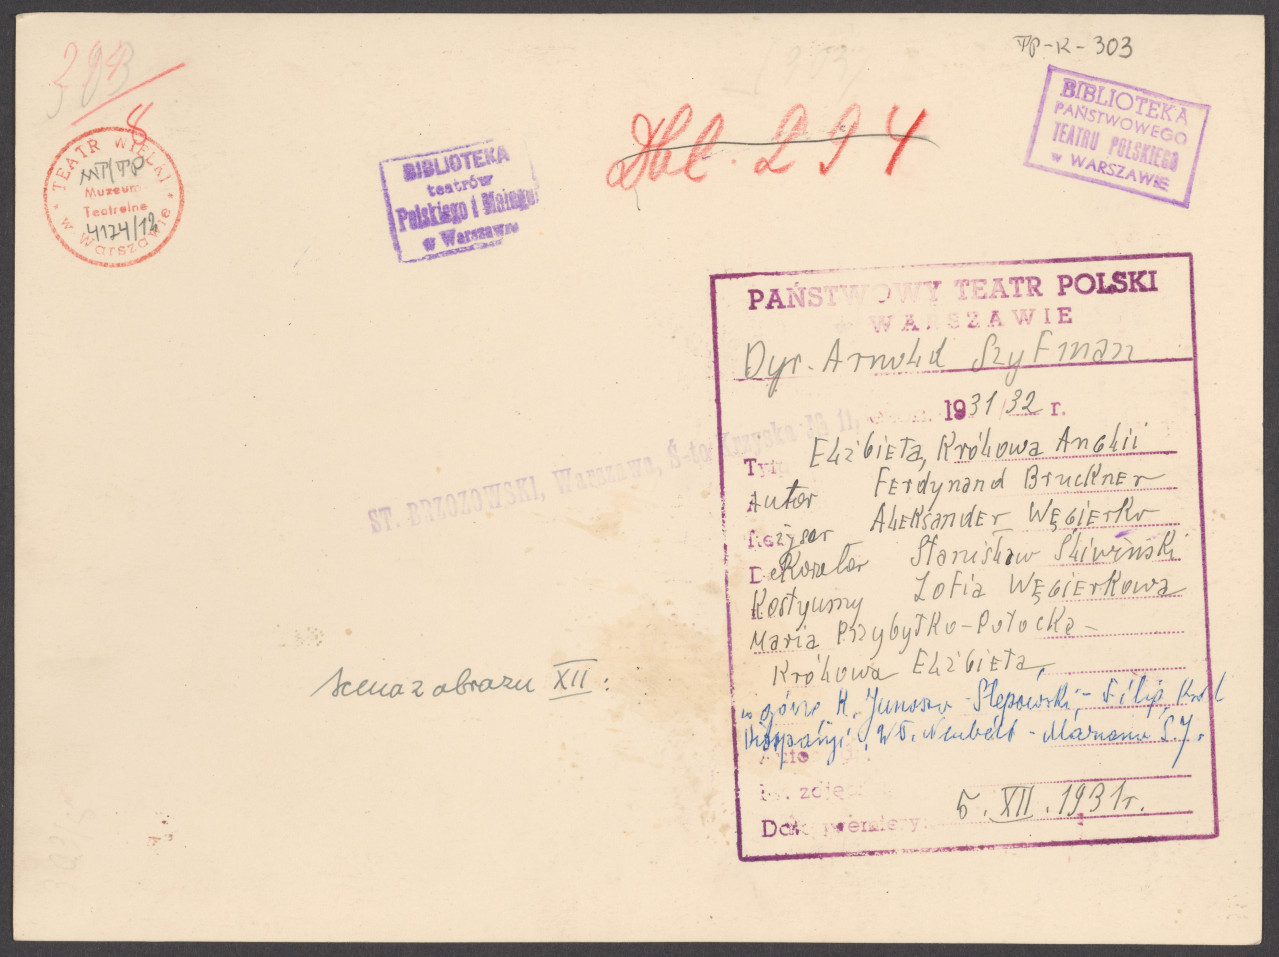 TP-K-303
303
8
TEATR WIELKI
MT/TP
Muzeum
Teatralne
4174/12
w Warszawie
BIBLIOTEKA
teatrów
Polskiego i Małego
w Warszawie
Abl. 294
BIBLIOTEKA
PAŃSTWOWEGO
TEATRU POLSKIEGO
w WARSZAWIE
PAŃSTWOWY TEATR POLSKI
WARSZAWIE
Dyr. Arnold Szyfman
1931/32 r.
Tyt. Elżbieta, Królowa Anglii
Autor Ferdynand Bruckner
Reżyser Aleksander Węgierko
Dekorator Stanisław Śliwiński
Kostyumy Zofia Węgierkowa
Maria Przybyłko-Potocka-
Królowa Elżbieta,
w górze K. Junosza-Stępowski,- Filip, Król
Hiszpanji, Wł. Neubelt - Mariana S.J.
zdjęc
Data premiery: 5. XII. 1931r.
ST. BRZOZOWSKI, Warszawa, Ś-to Krzyska № 11,
scena z obrazu XII: